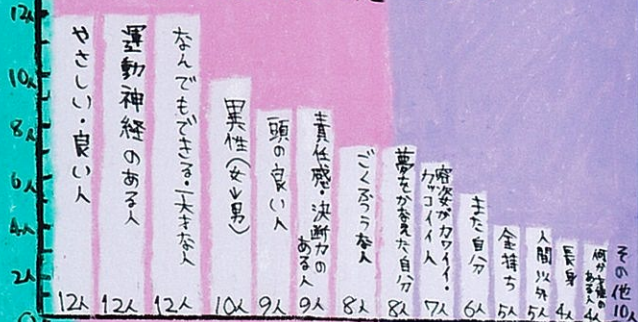 12人
10人
8人
6人
4人
2人
0人
やさしい・良い人
12人
運動神経のある人
12人
なんでもできる・大きな人
12人
異性(女↓男)
10人
頭の良い人
9人
責任感・決断力の
ある人
9人
ごくふつうな人
8人
夢をかなえた自分
8人
容姿がカワイイ・
カッコイイ人
7人
また自分
6人
金持ち
5人
人間以外
5人
長身
4人
何か
ある人
4人
その他
10人